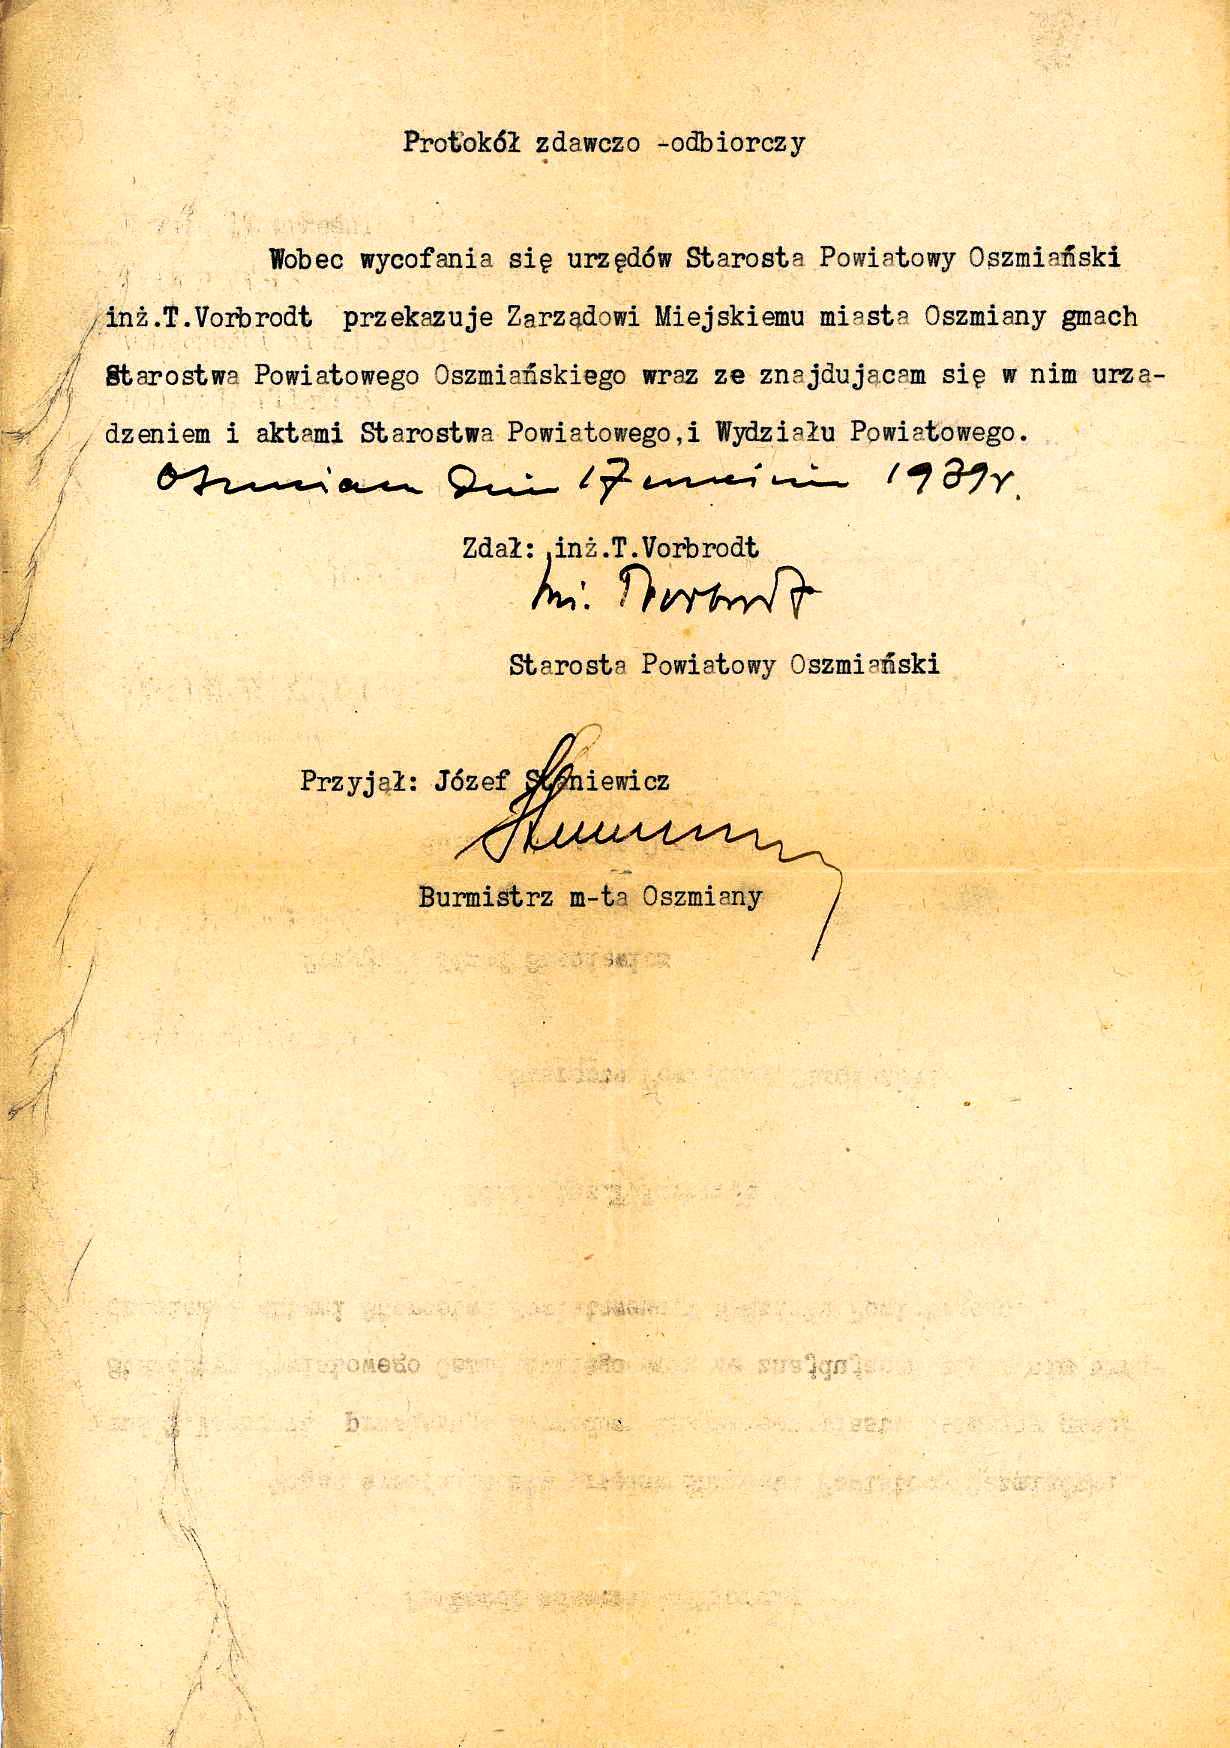 Protokół zdawczo -odbiorczy
Wobec wycofania się urzędów Starosta Powiatowy Oszmiański
inż.T.Vorbrodt przekazuje Zarządowi Miejskiemu miasta Oszmiany gmach
Starostwa Powiatowego Oszmiańskiego wraz ze znajdującam się w nim urzą-
dzeniem i aktami Starostwa Powiatowego,i Wydziału Powiatowego.
Oszmiana dnia 17 września 1939r.
Zdał: inż.T.Vorbrodt
inż. TVorbrodt
Starosta Powiatowy Oszmiański
Przyjął: Józef Staniewicz
Burmistrz m-ta Oszmiany